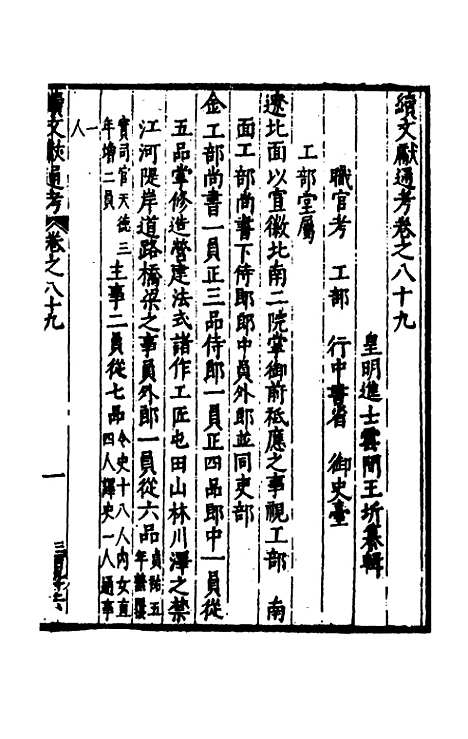 續文獻通考卷之八十九
皇明進士雲間王圻纂輯
職官考 工部 行中書省 御史臺
工部堂屬
遼北面以宣徽北南二院掌御前祗應之事視工部 南
面工部尚書下侍郎郎中員外郎並同吏部
金工部尚書一員正三品侍郎一員正四品郎中一員從
五品掌修造營建法式諸作工匠屯田山林川澤之禁
江河隄岸道路橋梁之事員外郎一員從六品貞祐五
年兼覆
實司官天德三
年增二員主事二員從七品令史十八人內女直
四人譯史一人通事
一
人
續文獻通考 卷之八十九 一